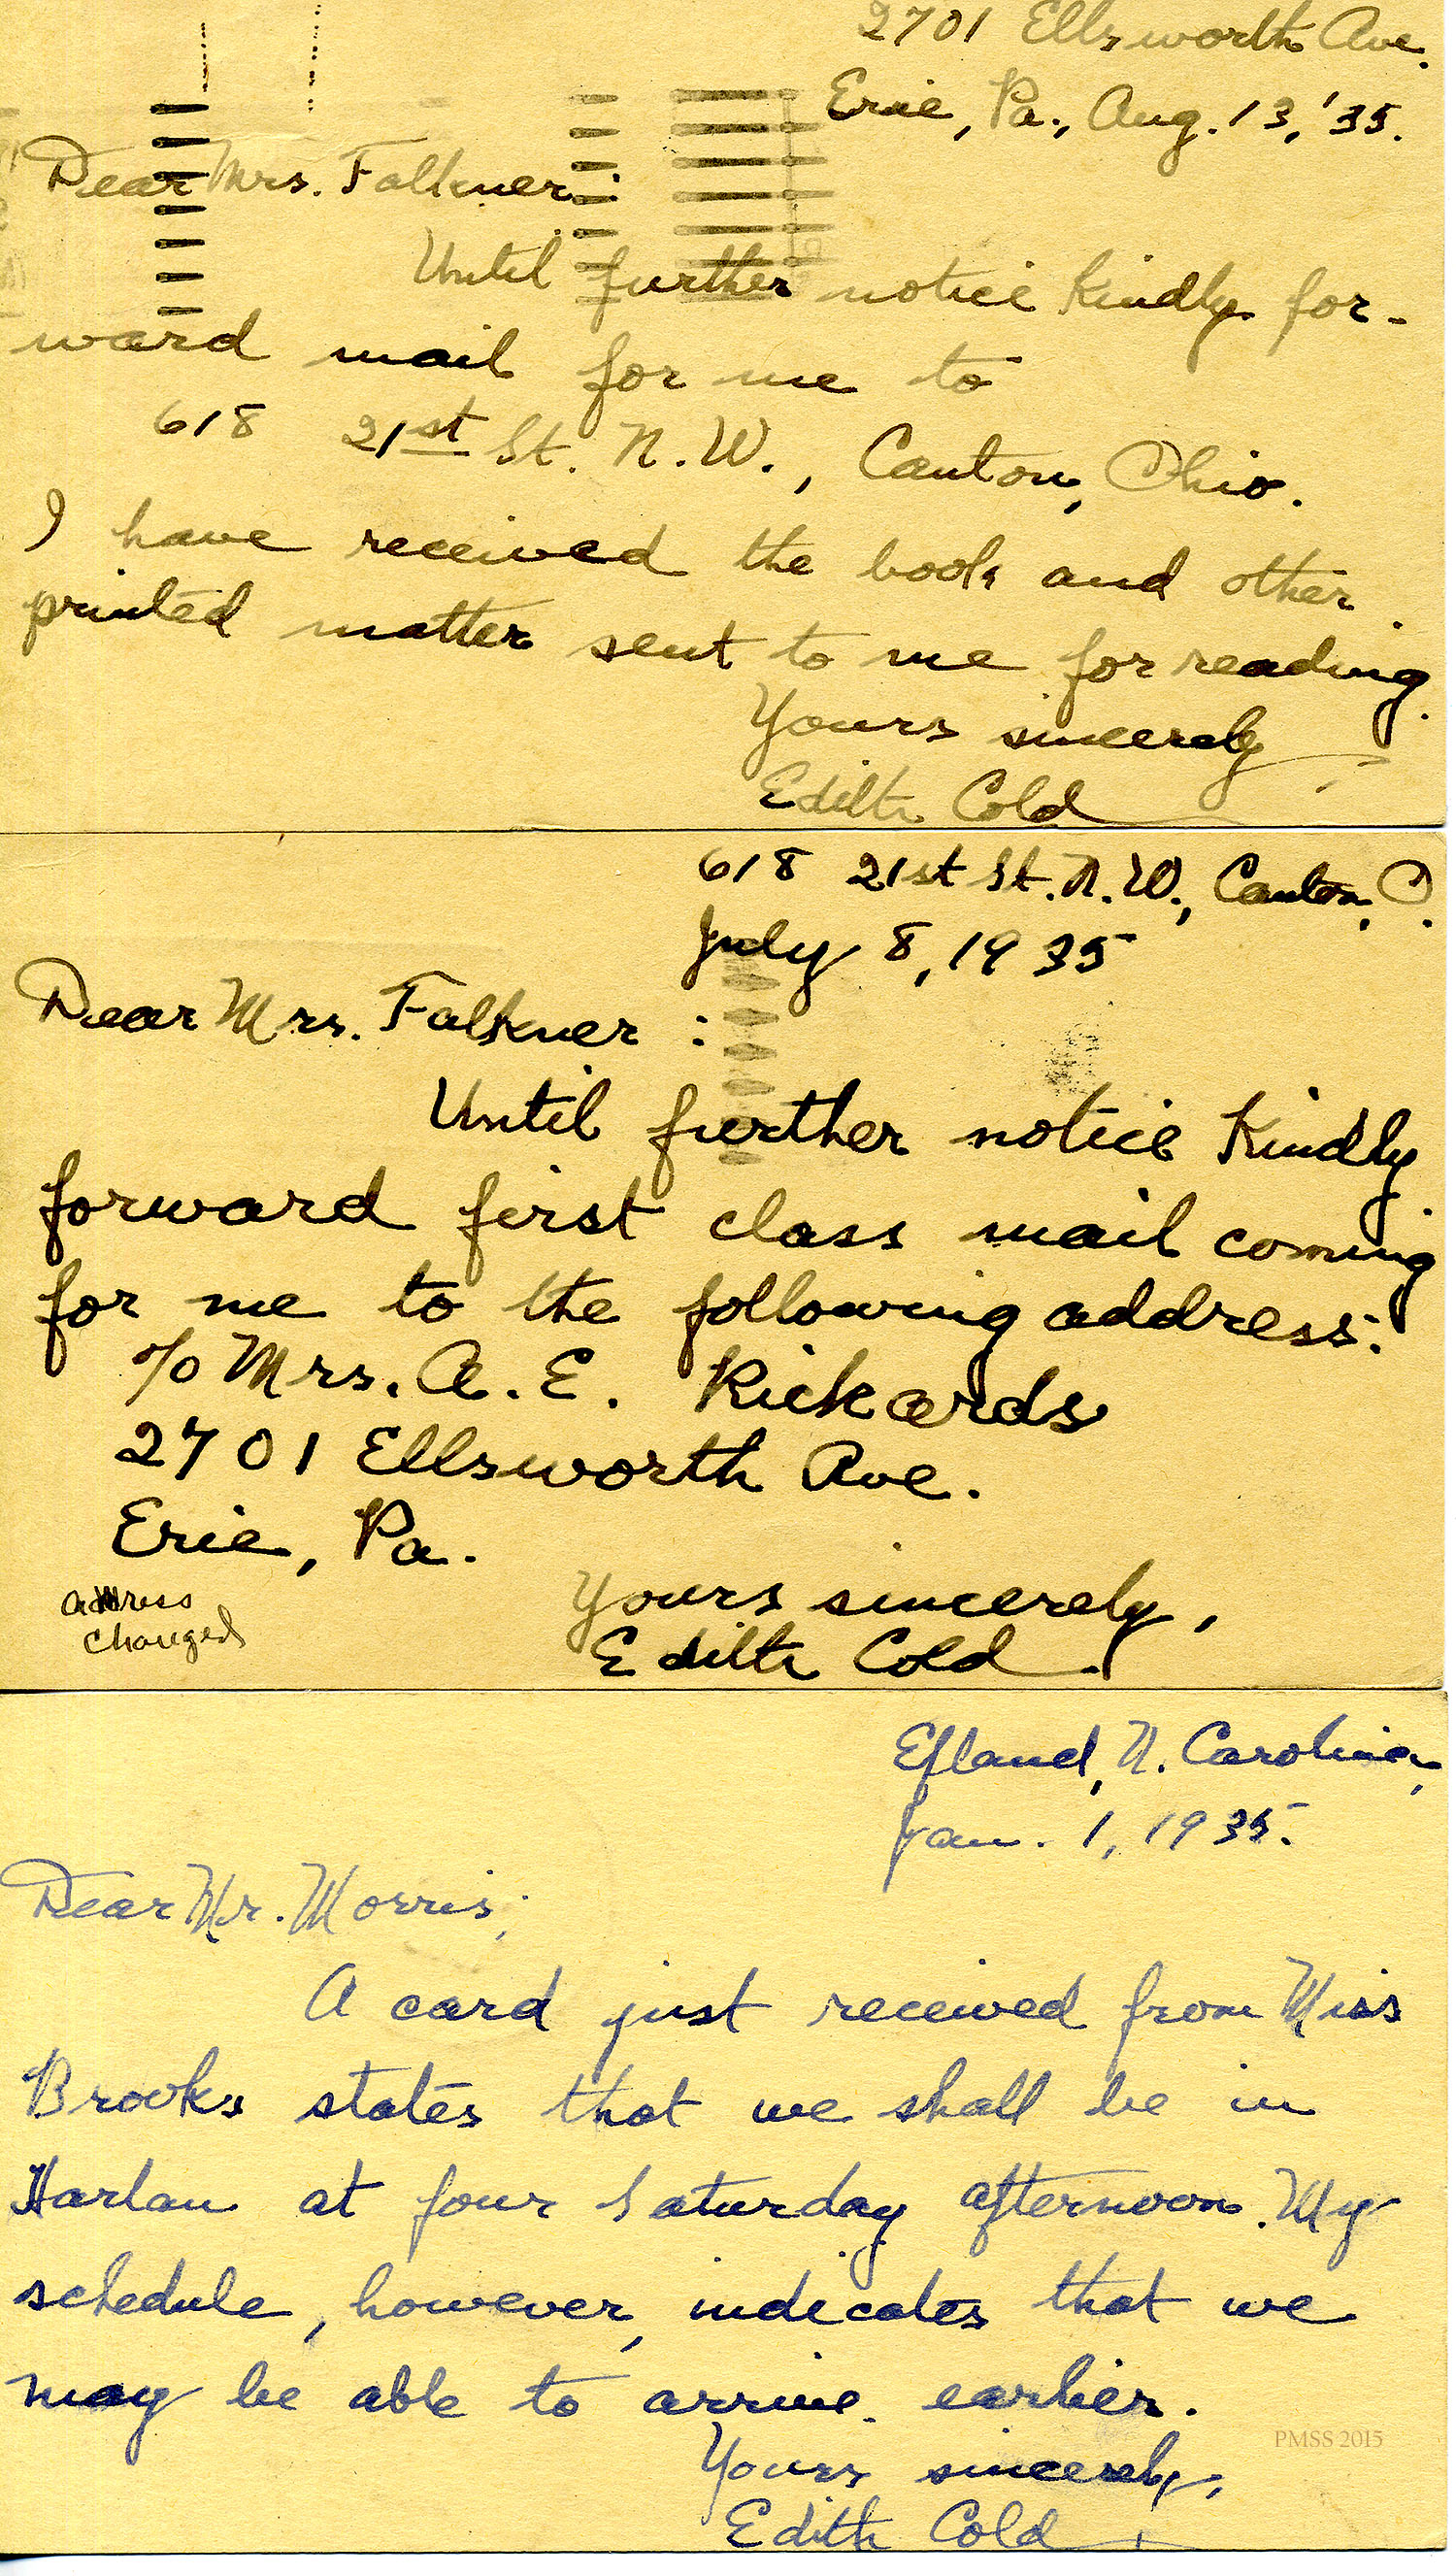 2701 Ellsworth Ave.
Erie, Pa., Aug. 13, '35.
Dear Mrs. Falkner:
Until further notice kindly for-
ward mail for me to
618 21st St. N.W., Canton, Ohio.
I have received the book and other
printed matter sent to me for reading.
Yours sincerely
Edith Cold
618 21st St. N.W., Canton, O.
July 8, 1935
Dear Mrs. Falkner:
Until further notice kindly
forward first class mail coming
for me to the following address:
c/o Mrs. A. E. Rickards
2701 Ellsworth Ave.
Erie, Pa.
address
changed
Yours sincerely,
Edith Cold.
Efland, N. Carolina,
Jan. 1, 1935.
Dear Mr. Morris;
A card just received from Miss
Brooks states that we shall be in
Harlan at four Saturday afternoon. My
schedule, however, indicates that we
may be able to arrive earlier.
PMSS 2015
Yours sincerely,
Edith Cold